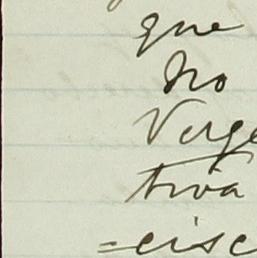 que
No
Verge
tiva
=cisc